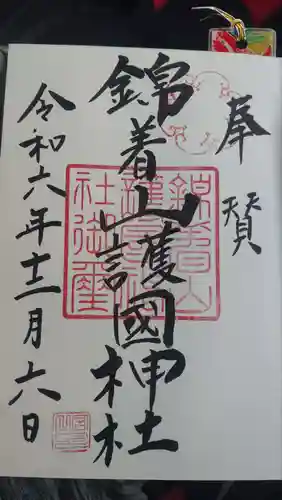 奉賛
錦着山護國神社
令和六年十二月六日
錦着山
護國神
社御璽